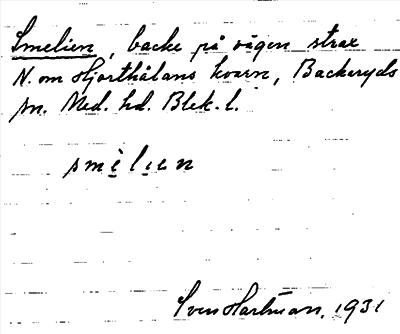 Smelien, backe på vägen strax
N. om Hjorthålans kvarn, Backaryds
sn. Med. hd. Blek. l.
smèlien
Sven Hartman, 1931